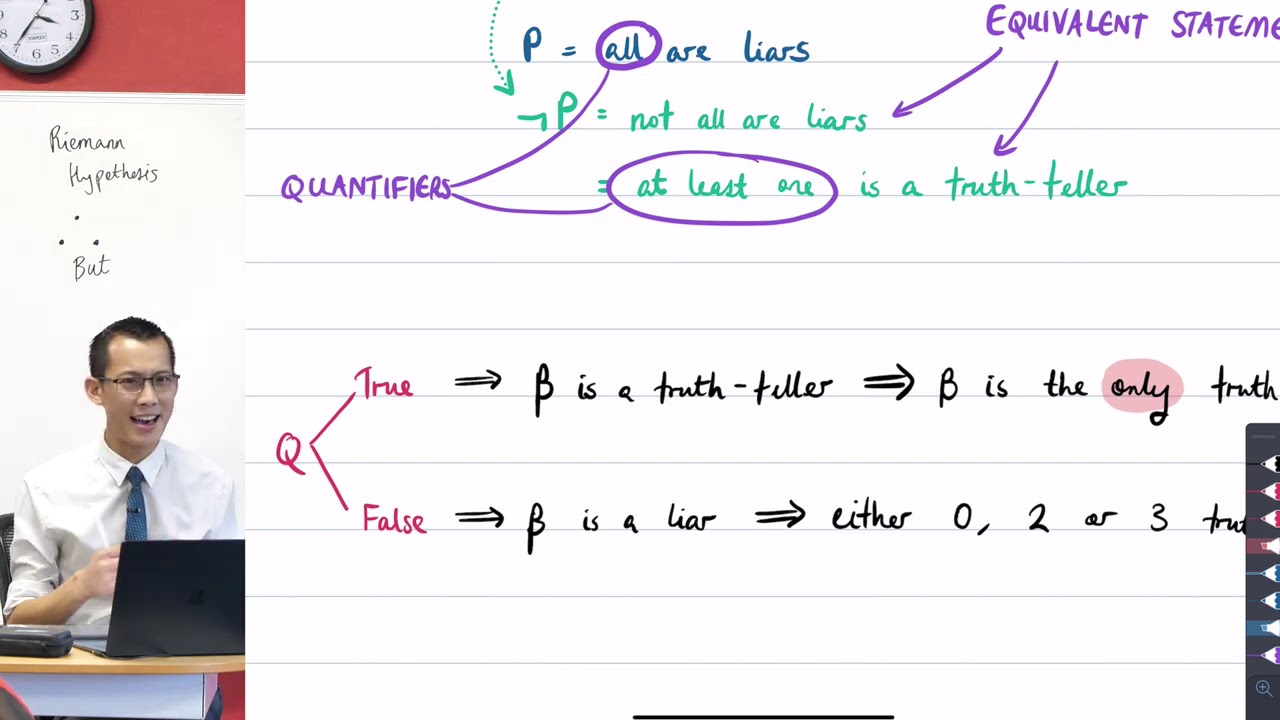 Riemann
Hypothesis
But
P = all are liars
EQUIVALENT
¬P = not all are liars
QUANTIFIERS
= at least one is a truth-teller
Q
True ⟹ β is a truth-teller ⟹ β is the only
False ⟹ β is a liar ⟹ either 0, 2 or 3